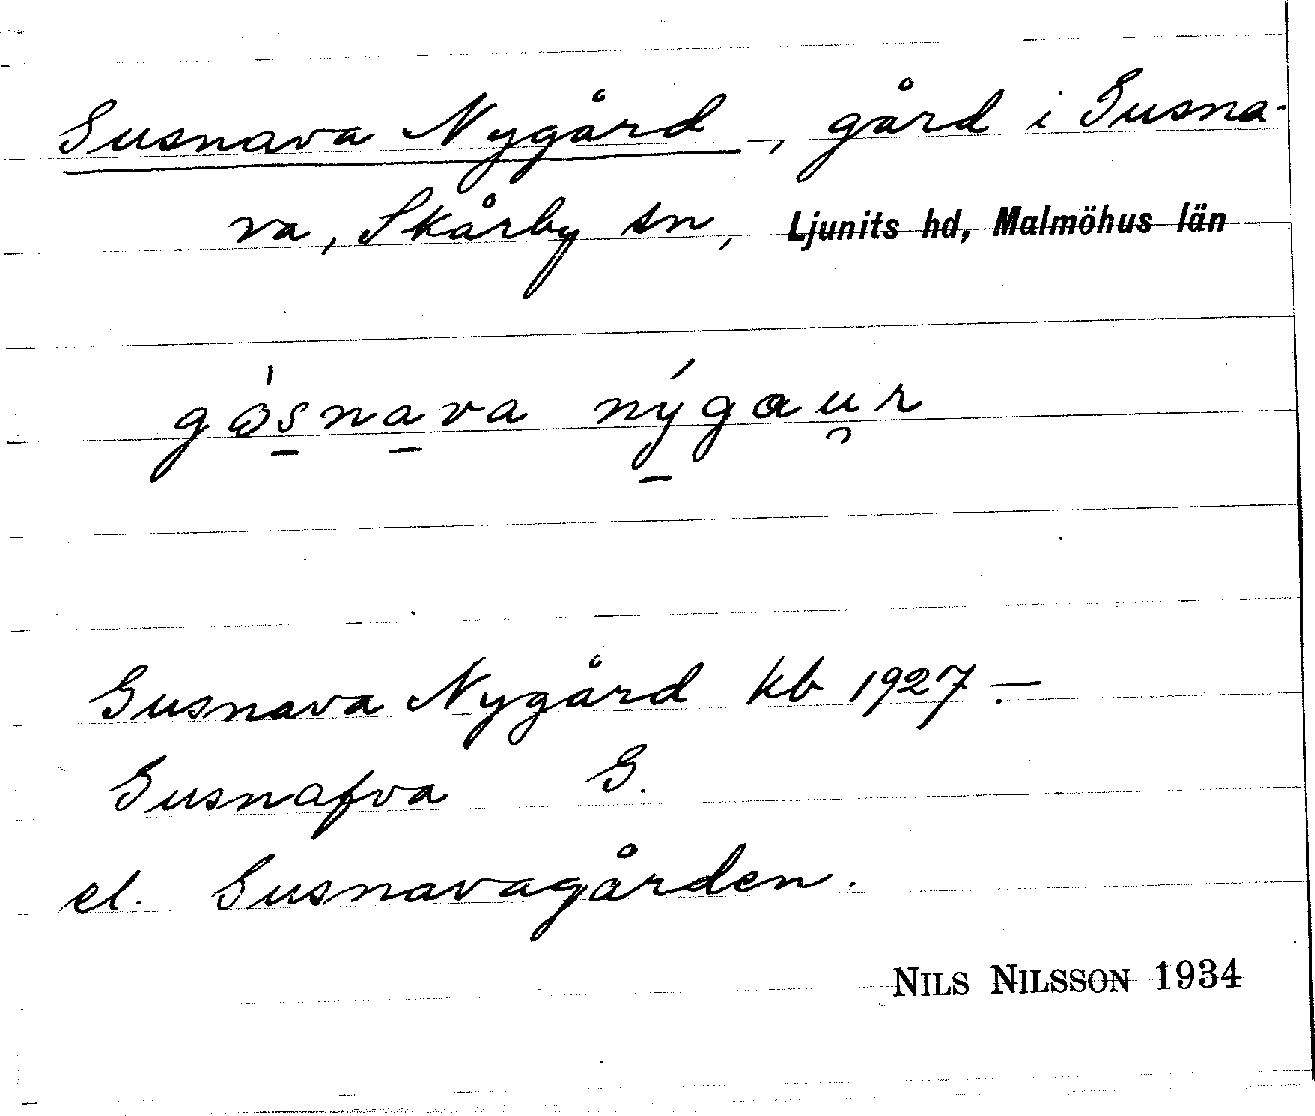 Gusnava Nygård, gård i Gusna-
va, Skårby sn, Ljunits hd, Malmöhus län
gǿsnava nýgaur
Gusnava Nygård kb 1927 –
Gusnafva G.
el. Gusnavagården.
NILS NILSSON 1934